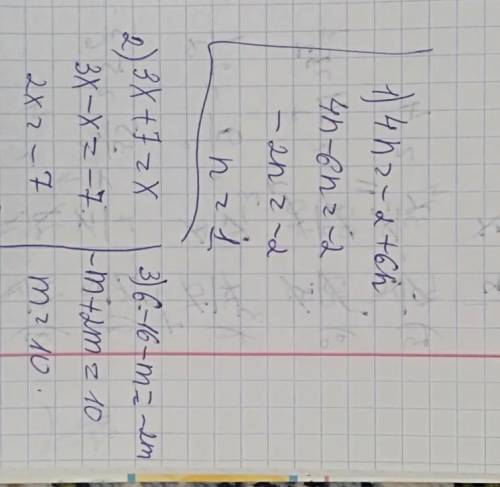 1) 4n = -2 + 6n
4n - 6n = -2
-2n = -2
n = 1
2) 3x + 7 = x
3x - x = -7
2x = -7
3) 6 - 16 - m = -2m
-m + 2m = 10
m = 10.